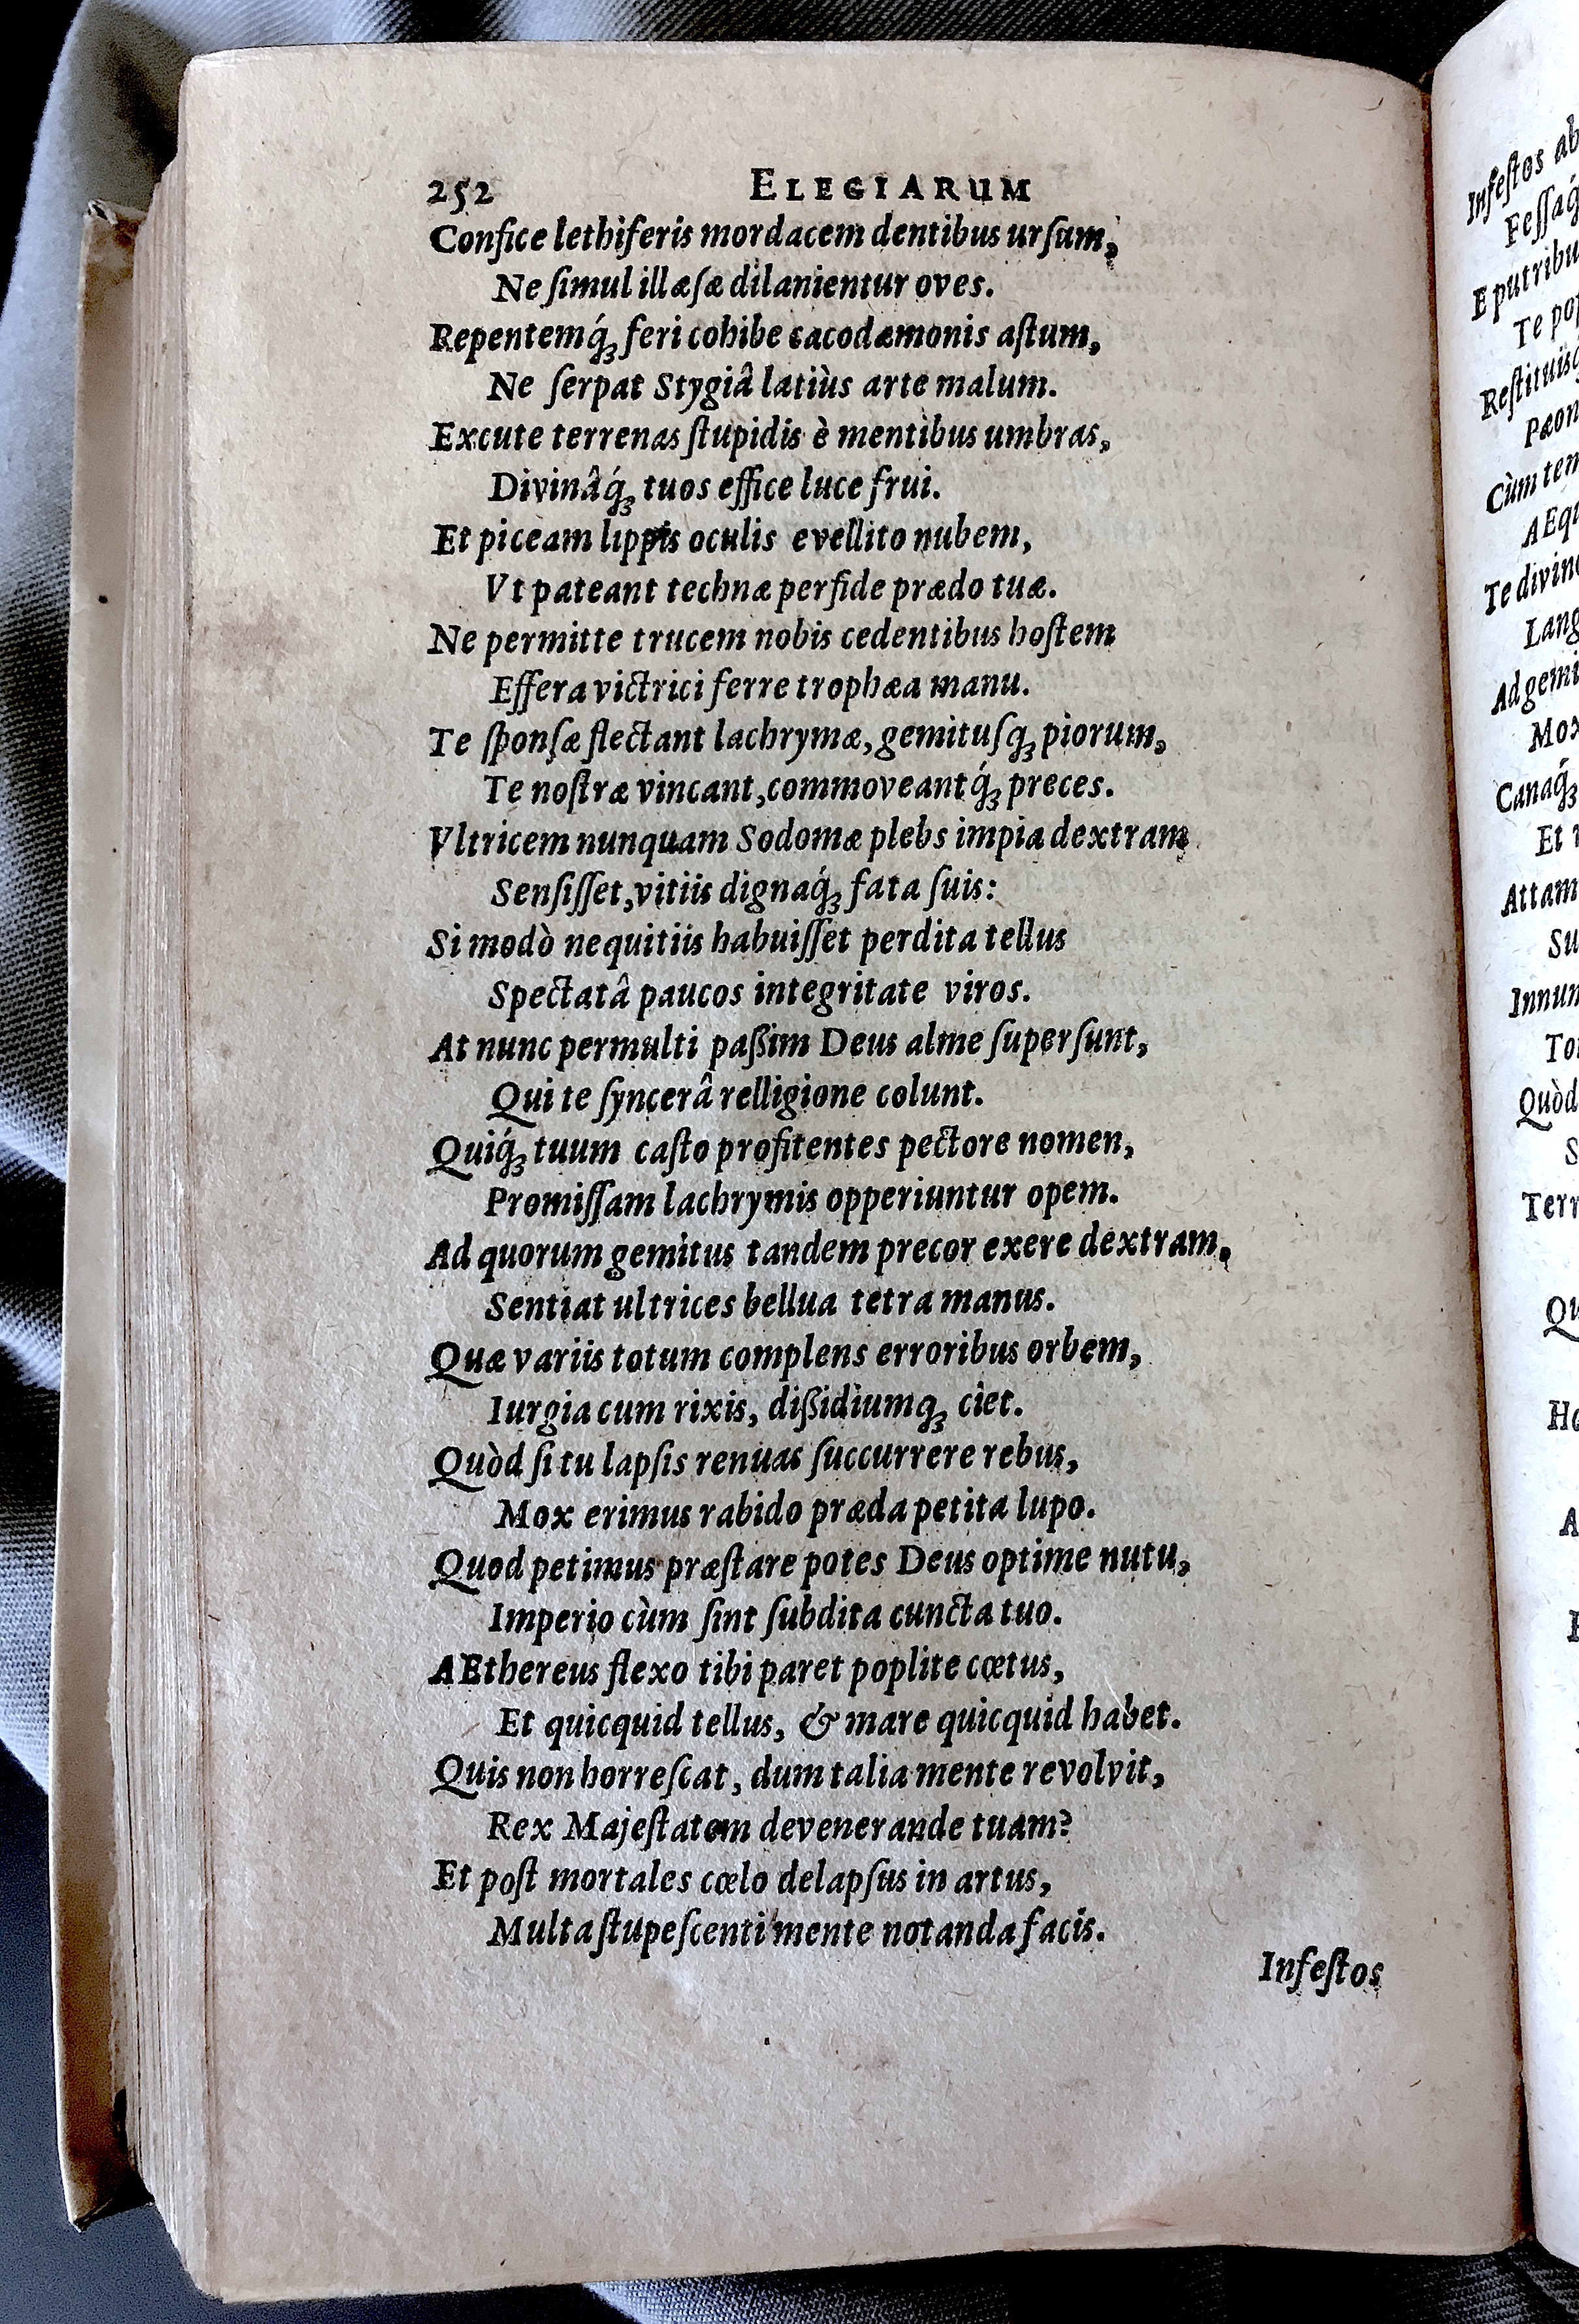 252 ELEGIARUM
Confice lethiferis mordacem dentibus urſum,
Ne ſimul illæſæ dilanientur oves.
Repentemq́ꝫ feri cohibe cacodæmonis aſtum,
Ne ſerpat Stygiâ latiùs arte malum.
Excute terrenas ſtupidis è mentibus umbras,
Divinâq́ꝫ tuos effice luce frui.
Et piceam lippis oculis evellito nubem,
Vt pateant technæ perfide prædo tuæ.
Ne permitte trucem nobis cedentibus hoſtem
Effera victrici ferre trophæa manu.
Te ſponſæ flectant lachrymæ, gemituſqꝫ piorum,
Te noſtræ vincant, commoveantq́ꝫ preces.
Vltricem nunquam Sodomæ plebs impia dextram
Senſiſſet, vitiis dignaq́ꝫ fata ſuis:
Si modò nequitiis habuiſſet perdita tellus
Spectatâ paucos integritate viros.
At nunc permulti paßim Deus alme ſuperſunt,
Qui te ſyncerâ relligione colunt.
Quiq́ꝫ tuum caſto profitentes pectore nomen,
Promiſſam lachrymis opperiuntur opem.
Ad quorum gemitus tandem precor exere dextram,
Sentiat ultrices bellua tetra manus.
Quæ variis totum complens erroribus orbem,
Iurgia cum rixis, dißidiumqꝫ ciet.
Quòd ſi tu lapſis renuas ſuccurrere rebus,
Mox erimus rabido præda petita lupo.
Quod petimus præſtare potes Deus optime nutu,
Imperio cùm ſint ſubdita cuncta tuo.
AEthereus flexo tibi paret poplite cœtus,
Et quicquid tellus, & mare quicquid habet.
Quis non horreſcat, dum talia mente revolvit,
Rex Majeſtatem devenerande tuam?
Et poſt mortales cœlo delapſus in artus,
Multa ſtupeſcenti mente notanda facis.
Infeſtos
Infeſtos ab
Feſſaq́
E putribu
Te pop
Reſtituisq́
Pæon
Cùm tem
AEqu
Te divino
Lang
Ad gemi
Mox
Canaq́ꝫ
Et
Attam
Su
Innum
To
Quòd
S
Terr
Qu
Ho
A